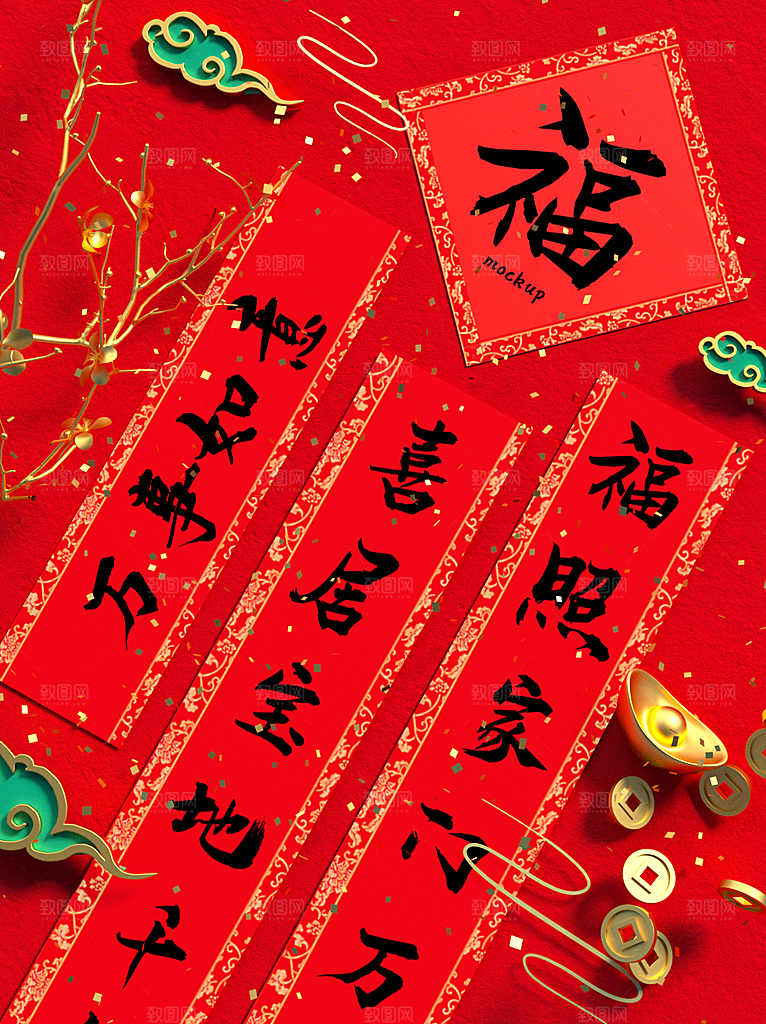 福
mockup
万事如意
喜居宝地千
福照家门万